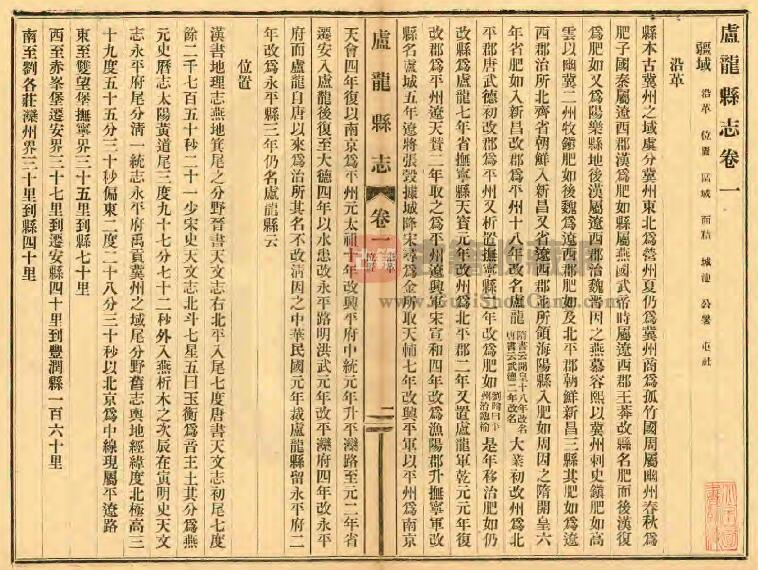 盧龍縣志卷一
疆域 沿革 位置 區域 面積 城池 公署 屯社
沿革
縣本古冀州之域虞分冀州東北爲營州夏仍爲冀州商爲孤竹國周屬幽州春秋爲
肥子國秦屬遼西郡漢爲肥如縣屬燕國武帝時屬遼西郡王莽改縣名肥而後漢復
爲肥如又爲陽樂縣地後漢屬遼西郡治魏晉因之燕慕容熙以冀州刺史鎭肥如高
雲以幽冀二州牧鎭肥如後魏爲遼西郡肥如及北平郡朝鮮新昌三縣其肥如爲遼
西郡治所北齊省朝鮮入新昌又省遼西郡並所領海陽縣入肥如周因之隋開皇六
年省肥如入新昌改郡爲平州十八年改名盧龍隋書云開皇十八年改名唐書云武德二年改名大業初改州爲北
平郡唐武德初改郡爲平州又析置撫寧縣七年改爲肥如是年移治肥如仍
改縣爲盧龍七年省撫寧縣天寳元年改州爲北平郡二年又置盧龍軍乾元元年復
改郡爲平州遼天贊二年取之爲平州遼興軍宋宣和四年改爲漁陽郡升撫寧軍改
縣名盧城五年遼將張瑴據城降宋尋爲金所取天輔七年改興平軍以平州爲南京
盧龍縣志 卷一 沿革 位置 二
天會四年復以南京爲平州元太祖十年改興平府中統元年升平灤路至元二年省
遷安入盧龍後復至大德四年以水患改永平路明洪武元年改平灤府四年改永平
府而盧龍自唐以來爲治所其名不改清因之中華民國元年裁盧龍縣留永平府二
年改爲永平縣三年仍名盧龍縣云
位置
漢書地理志燕地箕尾之分野晉書天文志右北平入尾七度唐書天文志初尾七度
餘二千七百五十秒二十一少宋史天文志北斗七星五曰玉衡爲音主土其分爲燕
元史曆志太陽黃道尾三度九十七分七十二秒外入燕析木之次辰在寅明史天文
志永平府尾分清一統志永平府禹貢冀州之域尾分野舊志輿地經緯度北極高三
十九度五十五分三十秒偏東二度二十八分三十秒以北京爲中線現屬平遼路
東至雙望堡撫寧界三十五里到縣七十里
西至赤峯堡遷安界三十七里到遷安縣四十里到豐潤縣一百六十里
南至劉各莊灤州界三十里到縣四十里